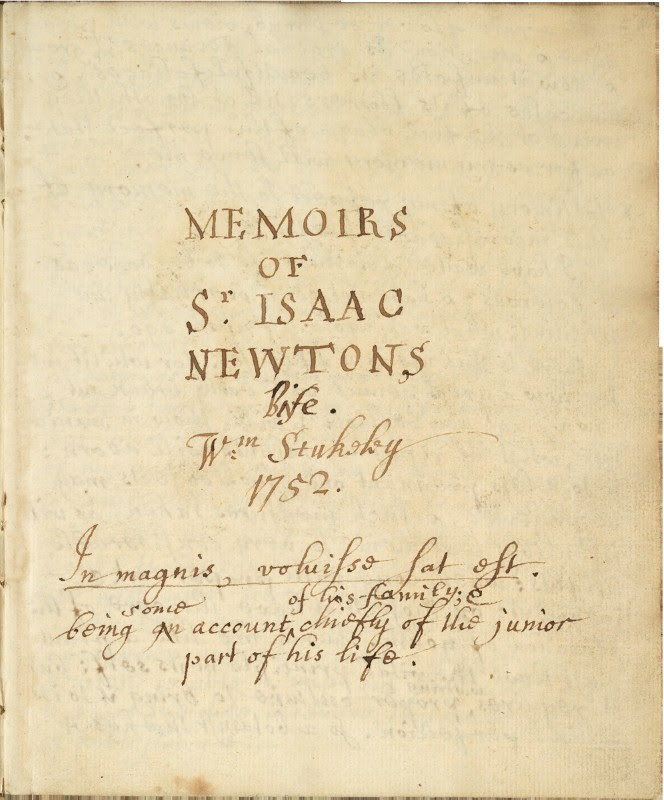 MEMOIRS
OF
Sʳ. ISAAC
NEWTONS
life.
Wᵐ. Stukeley
1752.
In magnis, voluisse sat est.
being some account, of his family; & chiefly of the junior
part of his life.